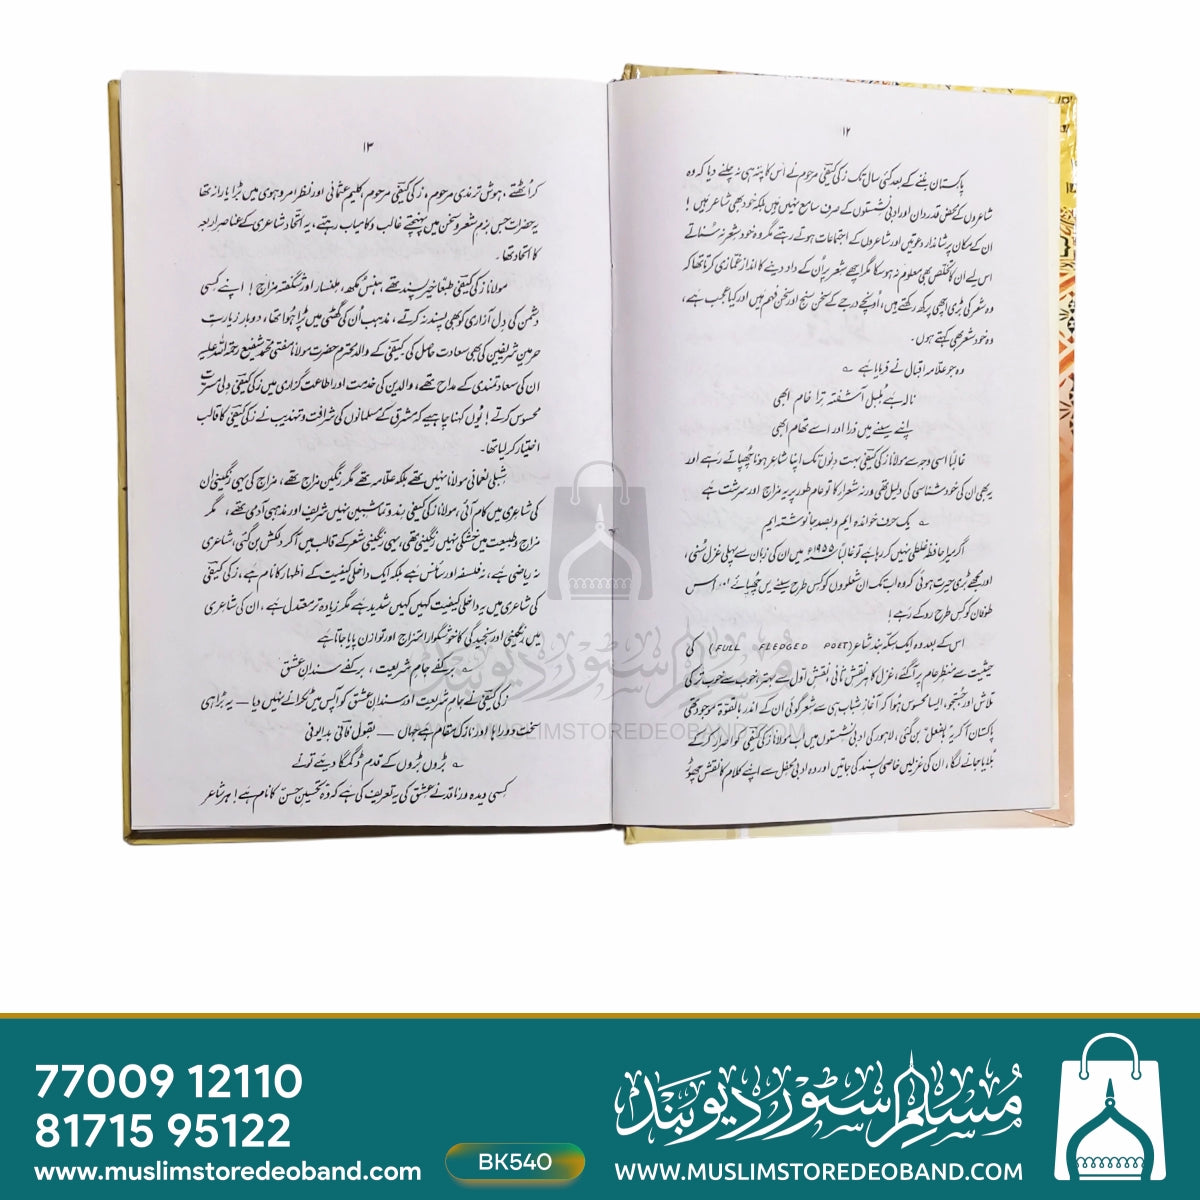 ۱۲
پاکستان بننے کے بعد کئی سال تک زکی کیفی مرحوم نے اس کا پتہ ہی نہ چلنے دیا کہ وہ
شاعروں کے محض قدردان اور ادبی نشستوں کے صرف سامع نہیں ہیں بلکہ خود بھی شاعر ہیں !
ان کے مکان پر شاندار دعوتیں اور شاعروں کے اجتماعات ہوتے رہتے مگر وہ خود شعر نہ سُناتے
اس لیے ان کا تخلص بھی معلوم نہ ہو سکا مگر اچھے شعر پر اُن کے داد دینے کا انداز غمازی کرتا تھا کہ
وہ شعر کی بڑی اچھی پرکھ رکھتے ہیں، اُونچے درجے کے سخن سنج اور سخن فہم ہیں اور کیا عجب ہے،
وہ خود شعر بھی کہتے ہوں ۔
وہ جو علامہ اقبال نے فرمایا ہے ؎
نالہ ہے بُلبلِ آشفتہ ترا خام ابھی
اپنے سینے میں ذرا اور اسے تھام ابھی
غالباً اسی وجہ سے مولانا زکی کیفی بہت دنوں تک اپنا شاعر ہونا چھپاتے رہے اور
یہ بھی ان کی خود شناسی کی دلیل تھی ورنہ شعراء کا تو عام طور پر یہ مزاج اور سرشت ہے
؎ یک حرف خواندہ ایم و بصد جا نوشتہ ایم
اگر میرا حافظہ غلطی نہیں کر رہا ہے تو غالباً ۱۹۵۵ء میں ان کی زبان سے پہلی غزل سُنی،
اور مجھے بڑی حیرت ہوئی کہ وہ اب تک ان شعلوں کو کس طرح سینے میں چھپائے اور اس
طوفان کو کس طرح روکے رہے !
اس کے بعد وہ ایک سکہ بند شاعر (FULL FLEDGED POET) کی
حیثیت سے منظرِ عام پر آ گئے، غزل کا ہر نقشِ ثانی نقشِ اول سے بہتر، خوب سے خوب تر کی
تلاش اور جستجو، ایسا محسوس ہوا کہ آغازِ شباب ہی سے شعر گوئی ان کے اندر بالقوۃ موجود تھی
پاکستان آ کر یہ بالفعل بن گئی، لاہور کی ادبی نشستوں میں اب مولانا زکی کیفی کو اصرار کر کے
بُلایا جانے لگا، ان کی غزلیں خاصی پسند کی جاتیں اور وہ ادبی محفل سے اپنے کلام کا نقش چھوڑ
۱۳
کر اُٹھتے، ہوش ترمذی مرحوم، زکی کیفی مرحوم، کلیم عثمانی اور نظر امروہوی میں بڑا یارانہ تھا
یہ حضرات جس بزمِ شعر و سخن میں پہنچتے غالب و کامیاب رہتے، یہ اتحاد شاعری کے عناصرِ اربعہ
کا اتحاد تھا ۔
مولانا زکی کیفی طبعاً خیر پسند تھے، ہنس مکھ، ملنسار اور شگفتہ مزاج ! اپنے کسی
دشمن کی دل آزاری کو بھی پسند نہ کرتے، مذہب اُن کی گھٹی میں پڑا ہوا تھا، دوبار زیارتِ
حرمین شریفین کی بھی سعادت حاصل کی کیفی کے والد محترم حضرت مولانا مفتی محمد شفیع رحمۃ اللہ علیہ
ان کی سعادتمندی کے مداح تھے، والدین کی خدمت اور اطاعت گزاری میں زکی کیفی دلی مسرت
محسوس کرتے ! یُوں کہنا چاہیے کہ مشرق کے مسلمانوں کی شرافت و تہذیب نے زکی کیفی کا قالب
اختیار کر لیا تھا۔
شبلی نعمانی مولانا نہیں تھے بلکہ علامہ تھے مگر رنگین مزاج تھے، مزاج کی یہی رنگینی ان
کی شاعری میں کام آئی، مولانا زکی کیفی رند و تماشبین نہیں شریف اور مذہبی آدمی تھے، مگر
مزاج و طبیعت میں خشکی نہیں رنگینی تھی، یہی رنگینی شعر کے قالب میں آ کر دلکش بن گئی، شاعری
نہ ریاضی ہے، نہ فلسفہ اور سائنس ہے بلکہ ایک داخلی کیفیت کے اظہار کا نام ہے، زکی کیفی
کی شاعری میں یہ داخلی کیفیت کہیں کہیں شدید ہے مگر زیادہ تر معتدل ہے، ان کی شاعری
میں رنگینی اور سنجیدگی کا خوشگوار امتزاج اور توازن پایا جاتا ہے
؎ بر کفے جامِ شریعت ، بر کفے سندانِ عشق
زکی کیفی نے جامِ شریعت اور سندانِ عشق کو آپس میں ٹکرانے نہیں دیا — یہ بڑا ہی
سخت دوراہا اور نازک مقام ہے جہاں — بقول فانی بدایونی
؎ بڑوں بڑوں کے قدم ڈگمگا دیئے تو نے
کسی دیدہ ور ناقد نے عشق کی یہ تعریف کی ہے کہ وہ تحسینِ حسن کا نام ہے ! ہر شاعر
مسلم سٹور دیوبند
MUSLIMSTOREDEOBAND.COM
77009 12110
81715 95122
www.muslimstoredeoband.com
BK540
مسلم سٹور دیوبند
WWW.MUSLIMSTOREDEOBAND.COM